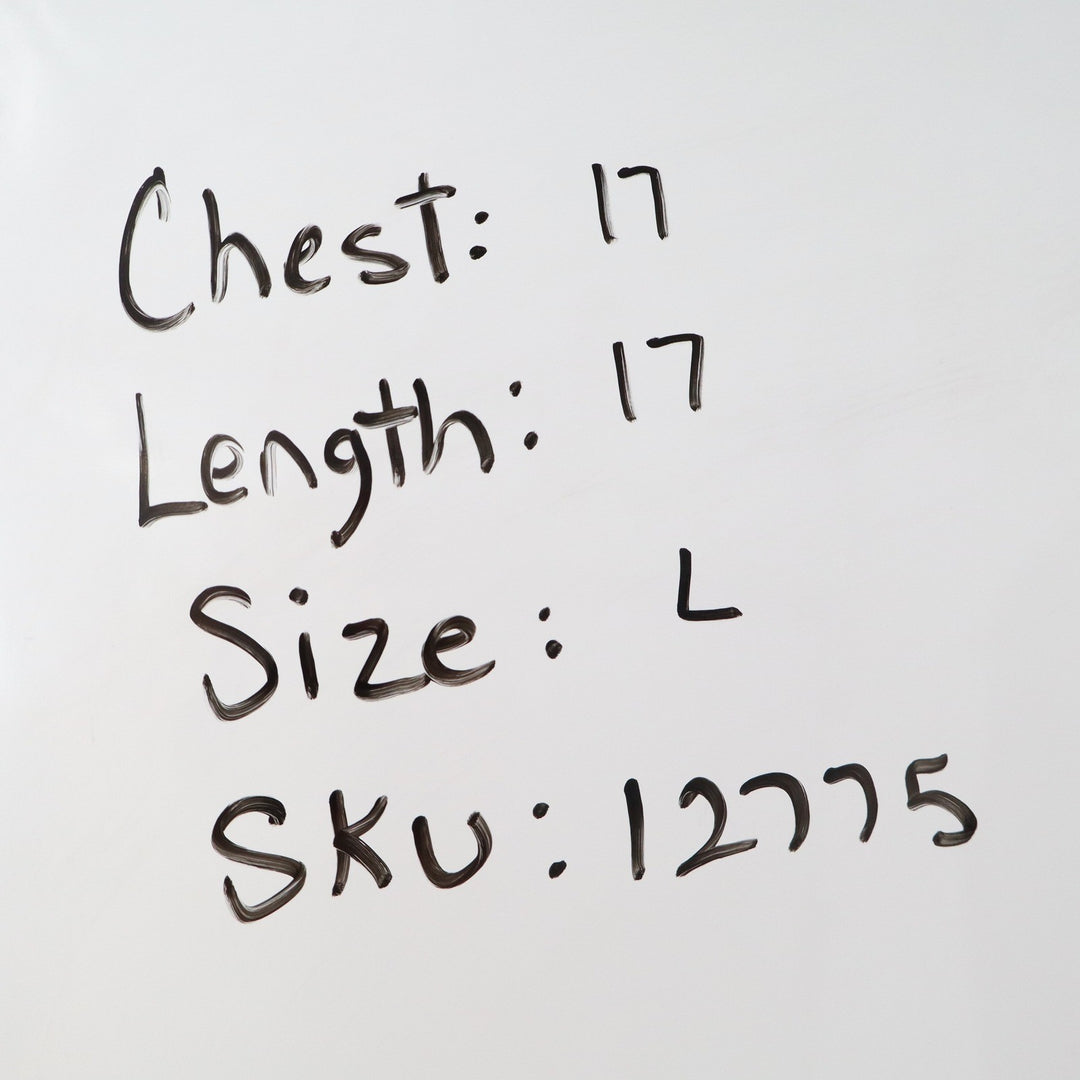 Chest: 17
Length: 17
Size: L
SKU: 12775